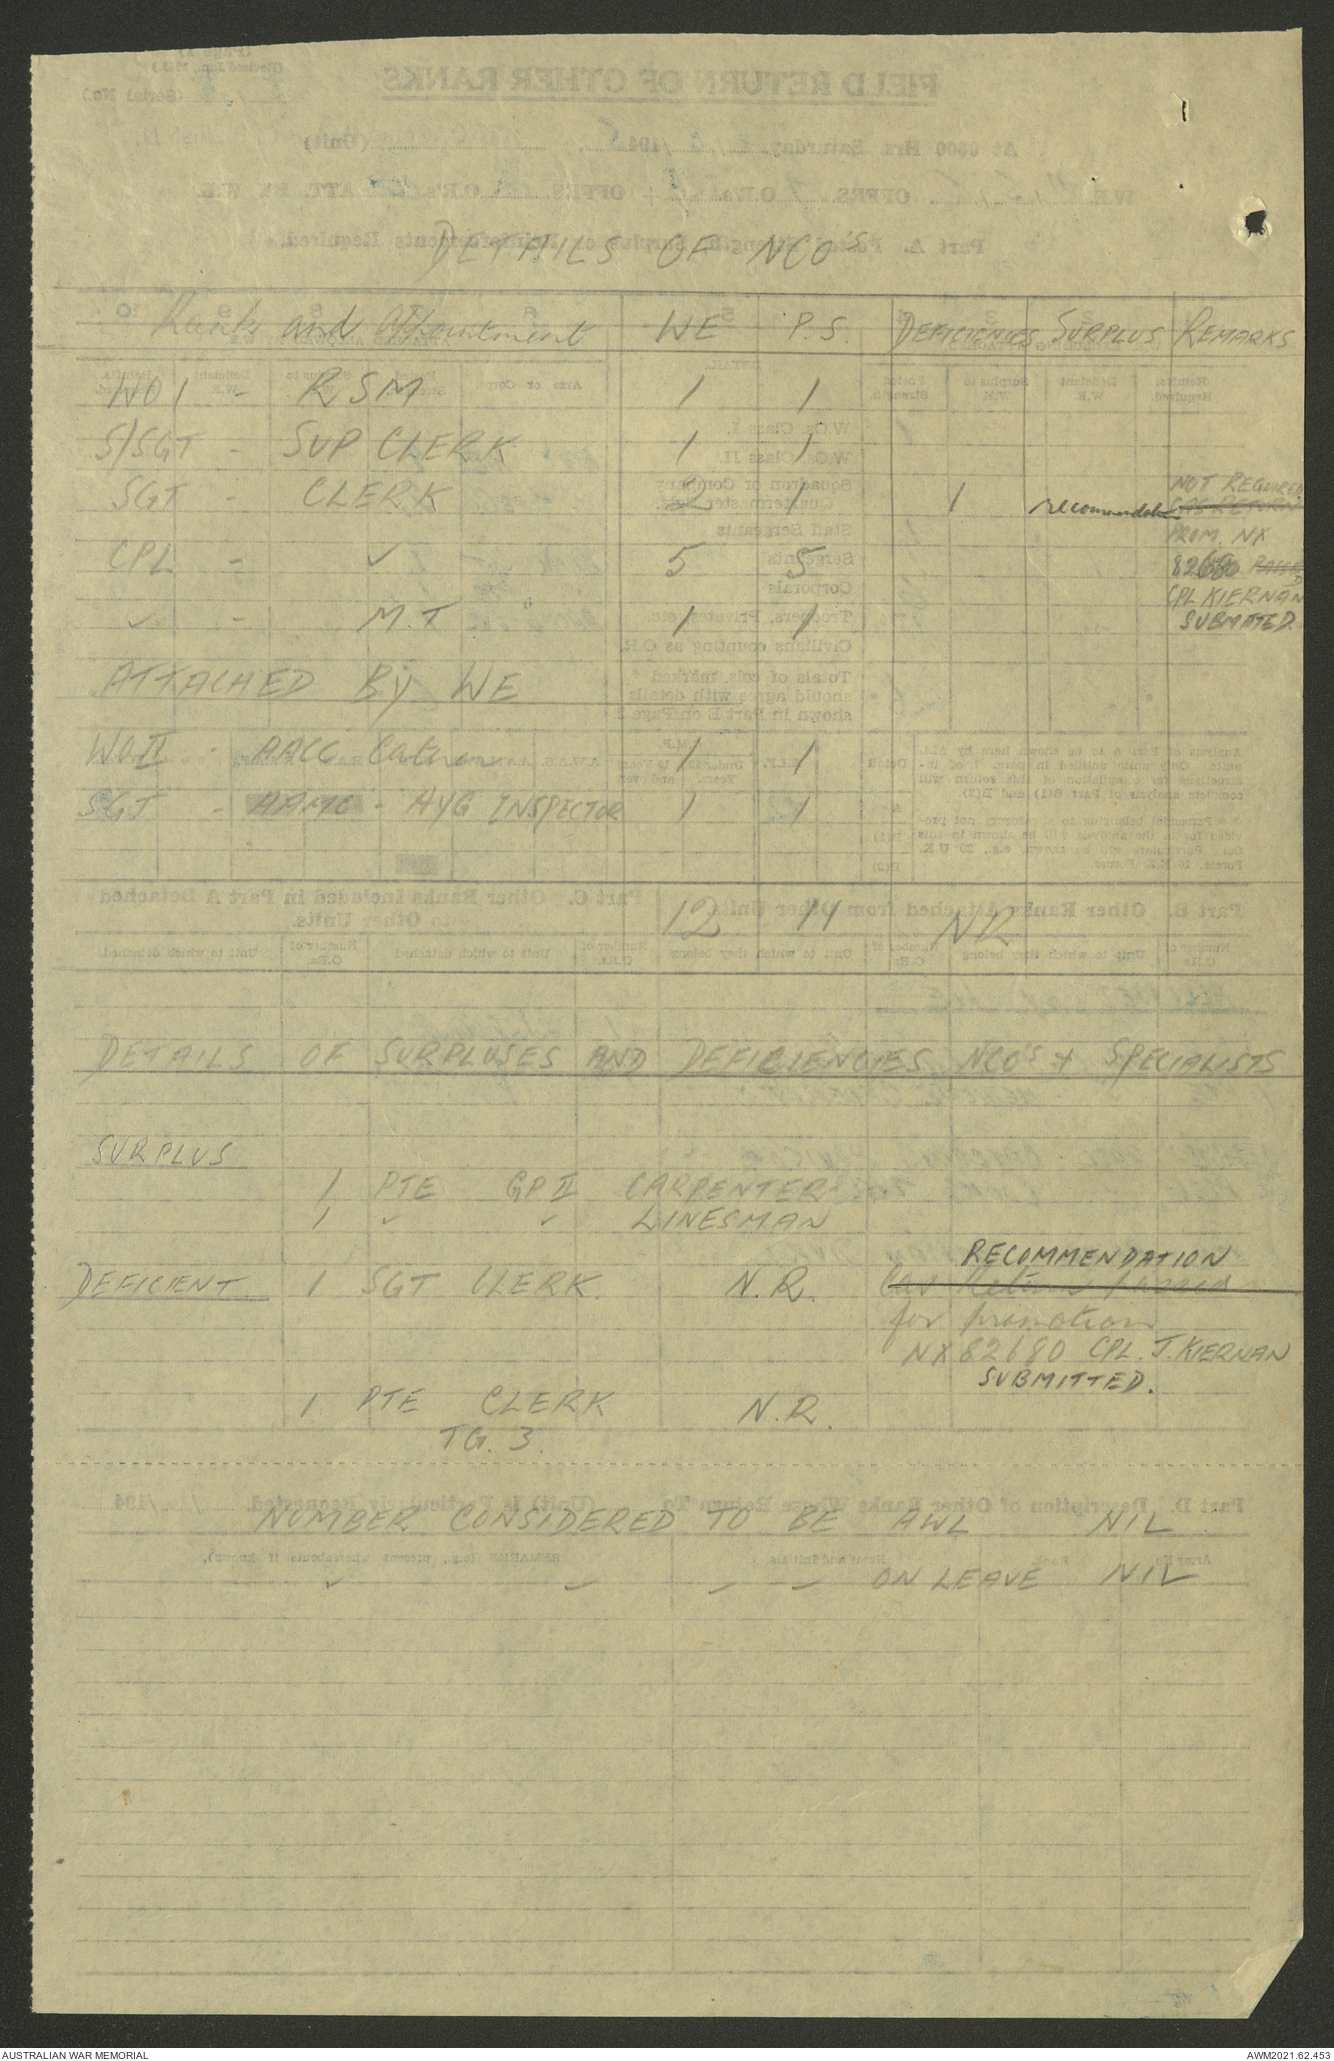 DETAILS OF NCO'S
Rank and Appointment WE P.S. DEFICIENCIES SURPLUS REMARKS
WO I - RSM 1 1
S/SGT - SUP CLERK 1 1
SGT - CLERK 2 1 1 recommendation NOT REQUIRED
CAS RETURN
PROM. NX
CPL - ✓ 5 5 82680
CPL KIERNAN
✓ - M.T 1 1 SUBMITTED.
ATTACHED By WE
WO II - AACC Caterer 1 1
SGT - AAMC - HYG INSPECTOR 1 1
12 11 NR
DETAILS OF SURPLUSES AND DEFICIENCIES NCO'S + SPECIALISTS
SURPLUS
1 PTE GP II CARPENTER
1 ✓ ✓ LINESMAN
RECOMMENDATION
DEFICIENT 1 SGT CLERK. N.R. Cas Return passed
for promotion
NX82680 CPL. J. KIERNAN
SUBMITTED.
1 PTE CLERK N.R.
TG. 3.
NUMBER CONSIDERED TO BE AWL NIL
✓ ✓ ✓ ✓ ON LEAVE NIL
AUSTRALIAN WAR MEMORIAL
AWM2021.62.453